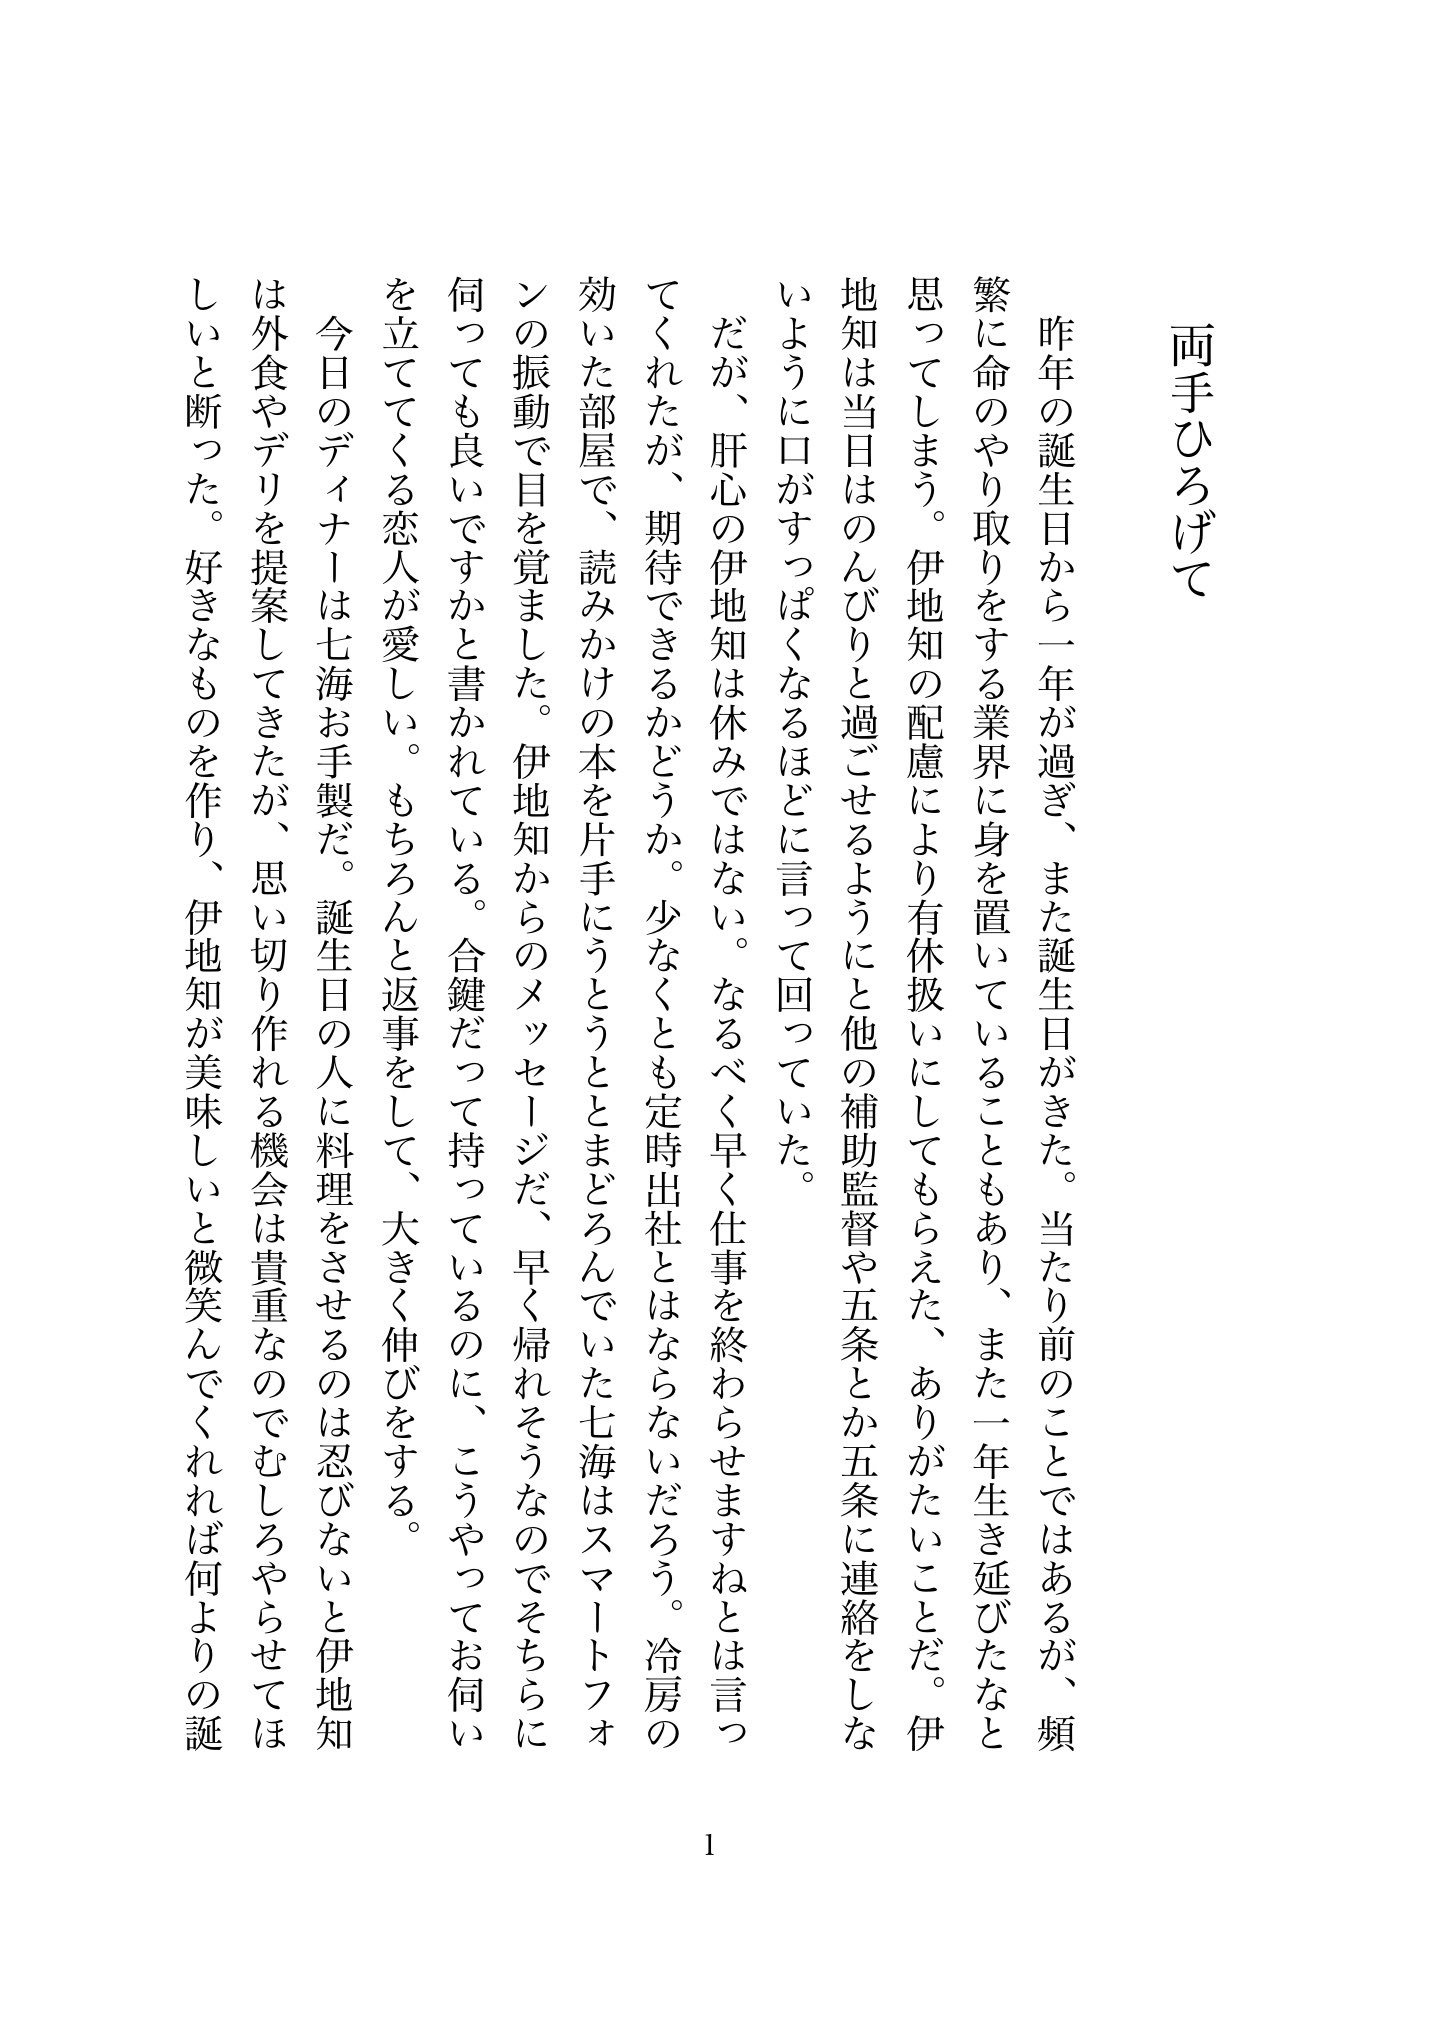 両手ひろげて
昨年の誕生日から一年が過ぎ、また誕生日がきた。当たり前のことではあるが、頻
繁に命のやり取りをする業界に身を置いていることもあり、また一年生き延びたなと
思ってしまう。伊地知の配慮により有休扱いにしてもらえた、ありがたいことだ。伊
地知は当日はのんびりと過ごせるようにと他の補助監督や五条とか五条に連絡をしな
いように口がすっぱくなるほどに言って回っていた。
だが、肝心の伊地知は休みではない。なるべく早く仕事を終わらせますねとは言っ
てくれたが、期待できるかどうか。少なくとも定時出社とはならないだろう。冷房の
効いた部屋で、読みかけの本を片手にうとうととまどろんでいた七海はスマートフォ
ンの振動で目を覚ました。伊地知からのメッセージだ、早く帰れそうなのでそちらに
伺っても良いですかと書かれている。合鍵だって持っているのに、こうやってお伺い
を立ててくる恋人が愛しい。もちろんと返事をして、大きく伸びをする。
今日のディナーは七海お手製だ。誕生日の人に料理をさせるのは忍びないと伊地知
は外食やデリを提案してきたが、思い切り作れる機会は貴重なのでむしろやらせてほ
しいと断った。好きなものを作り、伊地知が美味しいと微笑んでくれれば何よりの誕
1